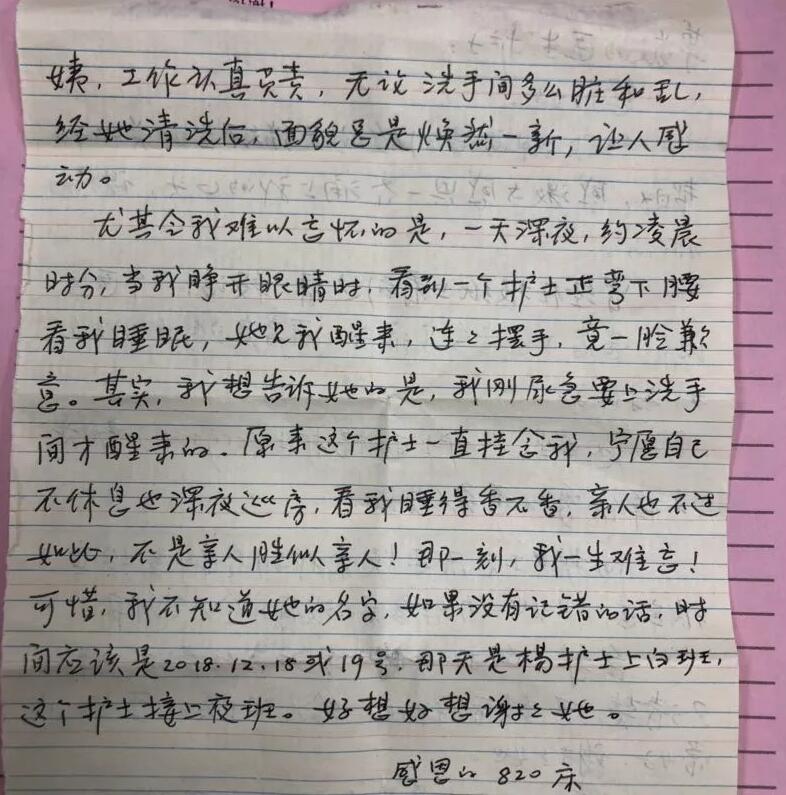 姨，工作认真负责，无论洗手间多么脏和乱，
经她清洗后，面貌总是焕然一新，让人感
动。
尤其令我难以忘怀的是，一天深夜，约凌晨
时分，当我睁开眼睛时，看到一个护士正弯下腰
看我睡眠，她见我醒来，连々摆手，竟一脸歉
意。其实，我想告诉她的是，我刚尿急要上洗手
间才醒来的。原来这个护士一直挂念我，宁愿自己
不休息也深夜巡房，看我睡得香不香，亲人也不过
如此，不是亲人胜似亲人！那一刻，我一生难忘！
可惜，我不知道她的名字，如果没有记错的话，时
间应该是2018.12.18或19号，那天是楊护士上白班，
这个护士接上夜班。好想好想谢々她。
感恩的 820床